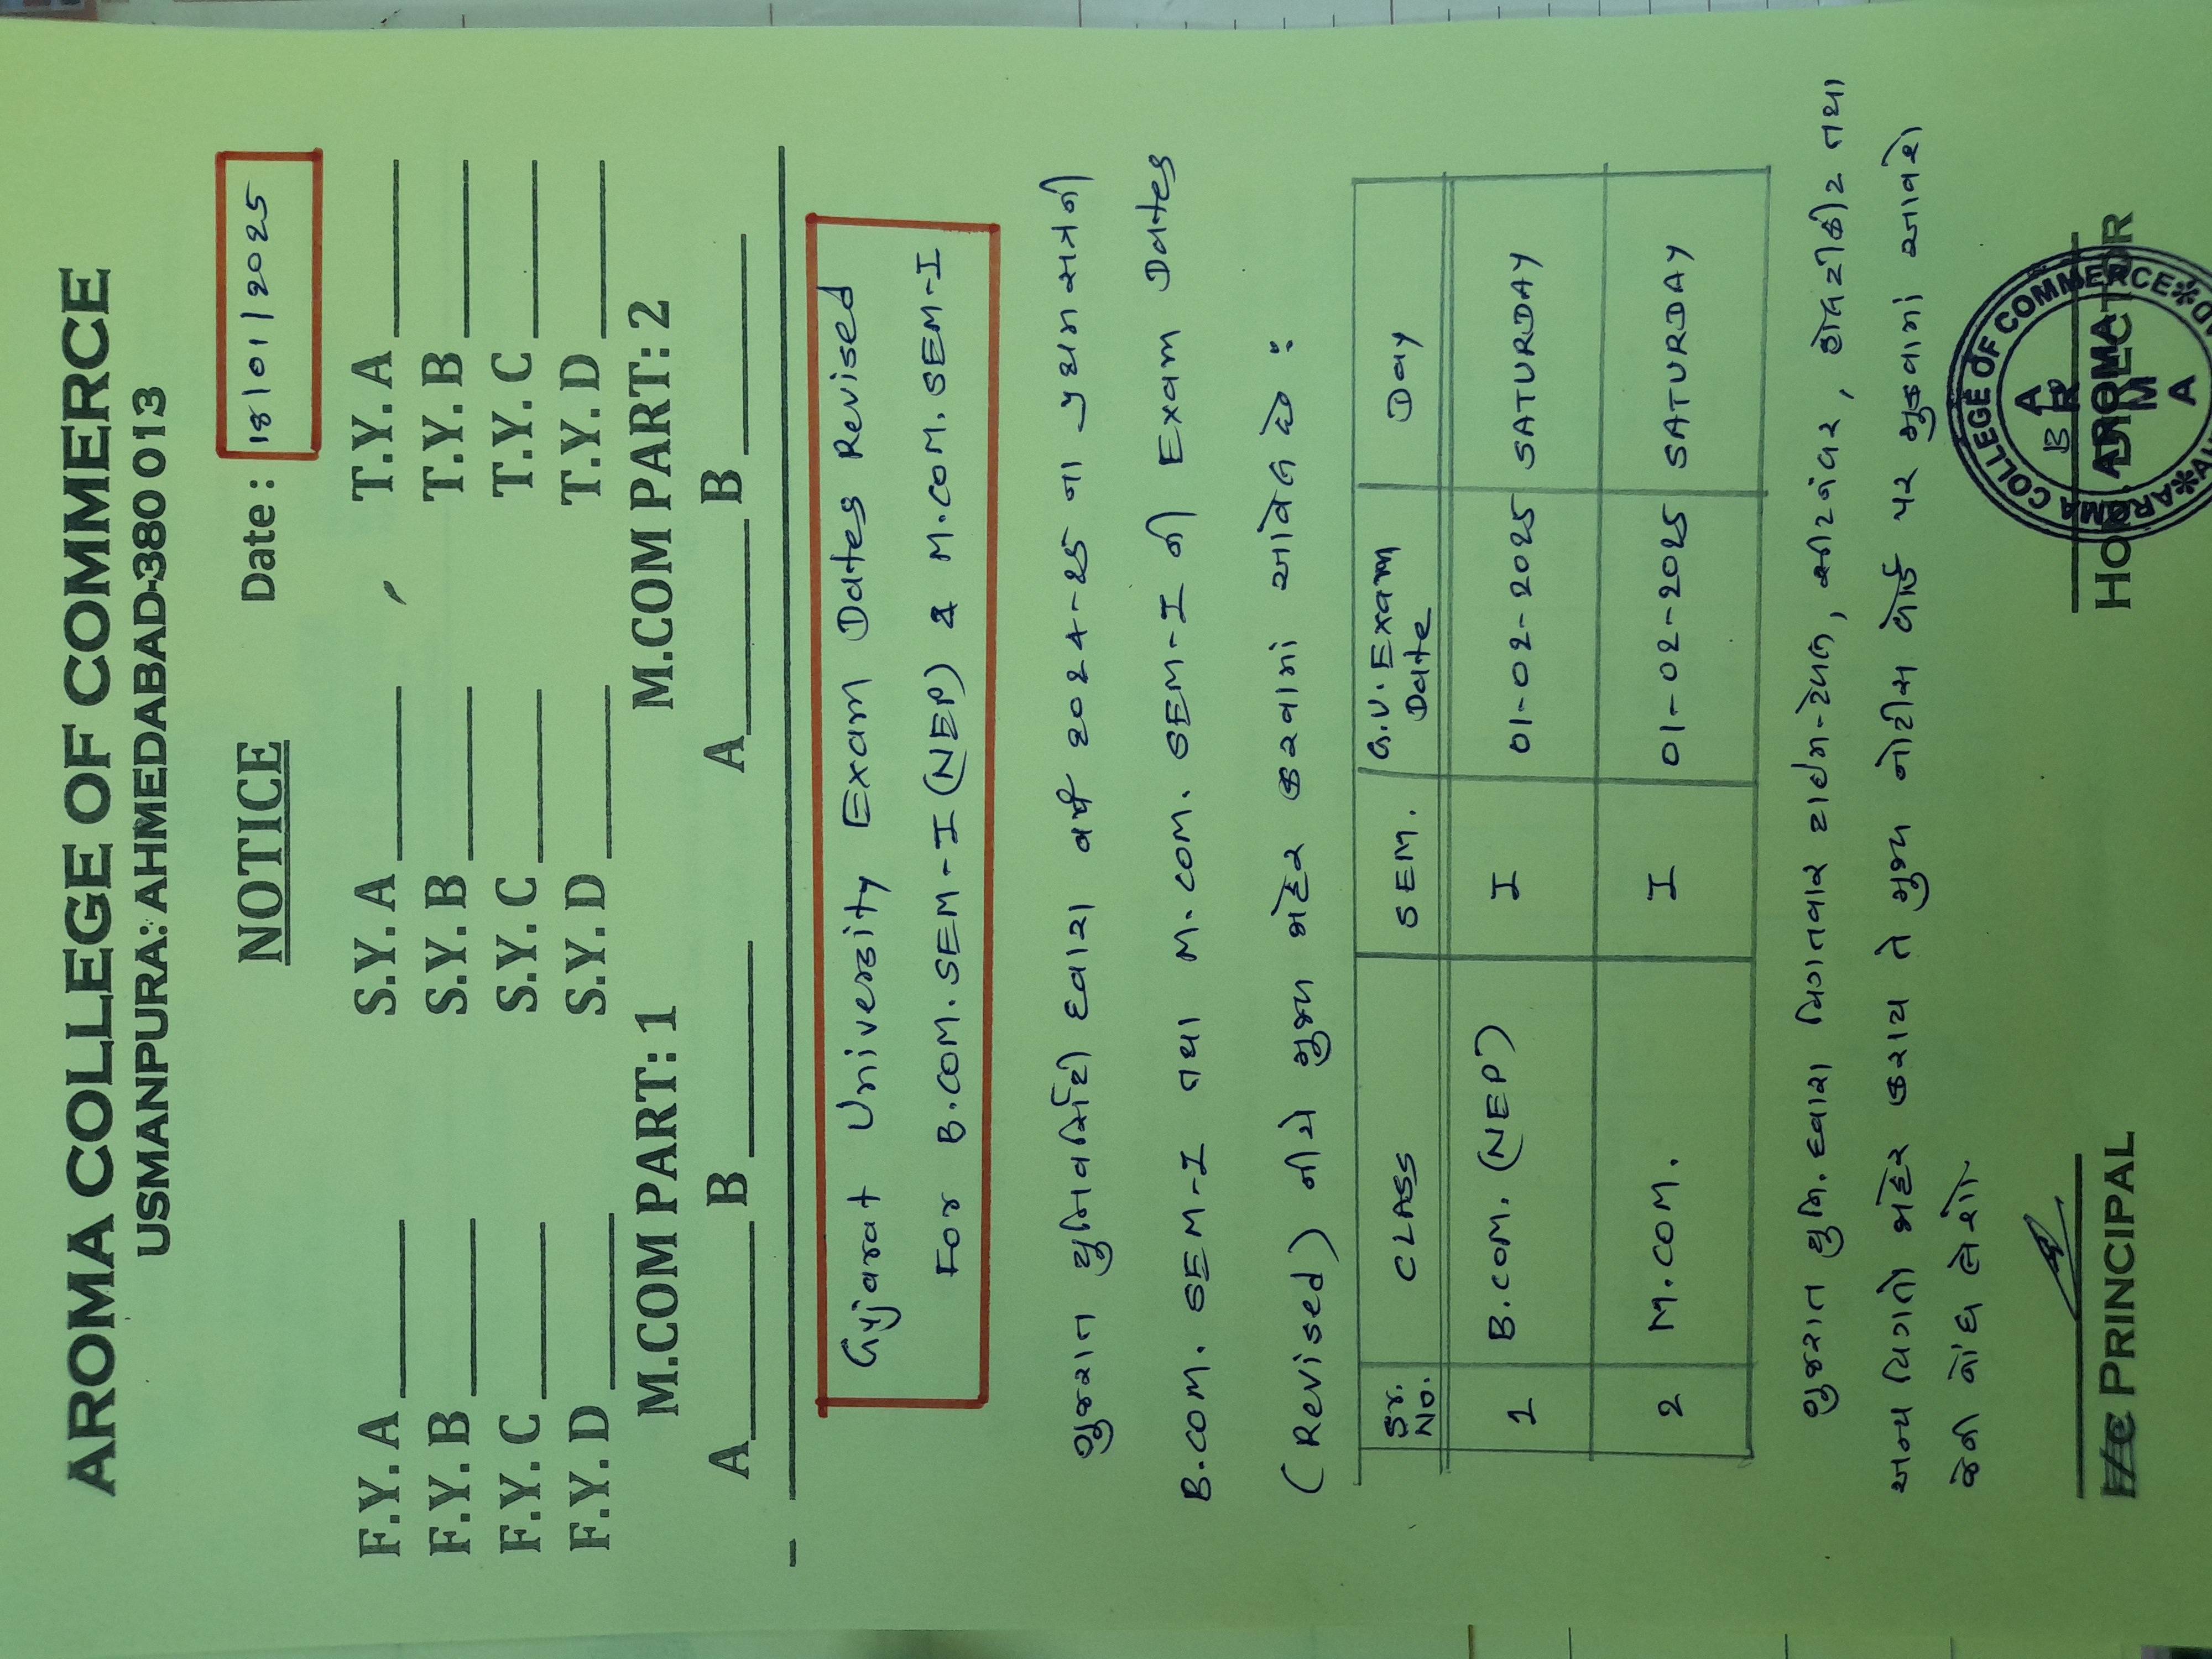 AROMA COLLEGE OF COMMERCE
USMANPURA: AHMEDABAD-380 013
NOTICE Date : 18/01/2025
F.Y. A ______ S.Y. A ______ T.Y. A ______
F.Y. B ______ S.Y. B ______ T.Y. B ______
F.Y. C ______ S.Y. C ______ T.Y. C ______
F.Y. D ______ S.Y. D ______ T.Y. D ______
M.COM PART: 1 M.COM PART: 2
A______ B______ A______ B______
Gujarat University Exam Dates Revised
For B.COM. SEM-I (NEP) & M.COM. SEM-I
ગુજરાત યુનિવર્સિટી દ્વારા વર્ષ ૨૦૨૪-૨૫ ના પ્રથમ સત્રની
B.COM. SEM-I તથા M.COM. SEM-I ની Exam Dates
(Revised) નીચે મુજબ જાહેર કરવામાં આવેલ છે :
Sr. No. CLASS SEM. G.U. Exam Date Day
1 B.COM. (NEP) I 01-02-2025 SATURDAY
2 M.COM. I 01-02-2025 SATURDAY
ગુજરાત યુનિ. દ્વારા વિગતવાર ટાઈમ-ટેબલ, સીટ નંબર, હોલ ટીકીટ તથા
અન્ય વિગતો જાહેર કરાય તે મુજબ નોટીસ બોર્ડ પર મુકવામાં આવશે
જેની નોંધ લેશો.
I/C PRINCIPAL HON. DIRECTOR
AROMA COLLEGE OF COMMERCE
AROMA